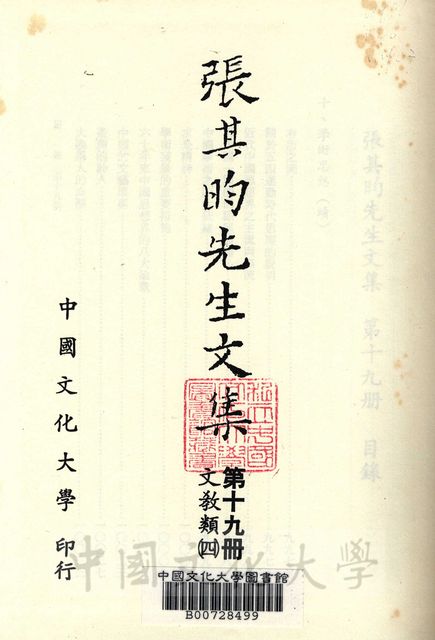 張其昀先生文集
第十九冊
文教類㈣
中國文化大學 印行
中國文化大學圖書館
B00728499
中國文化大學
張其昀先生文集 第十九冊 目錄